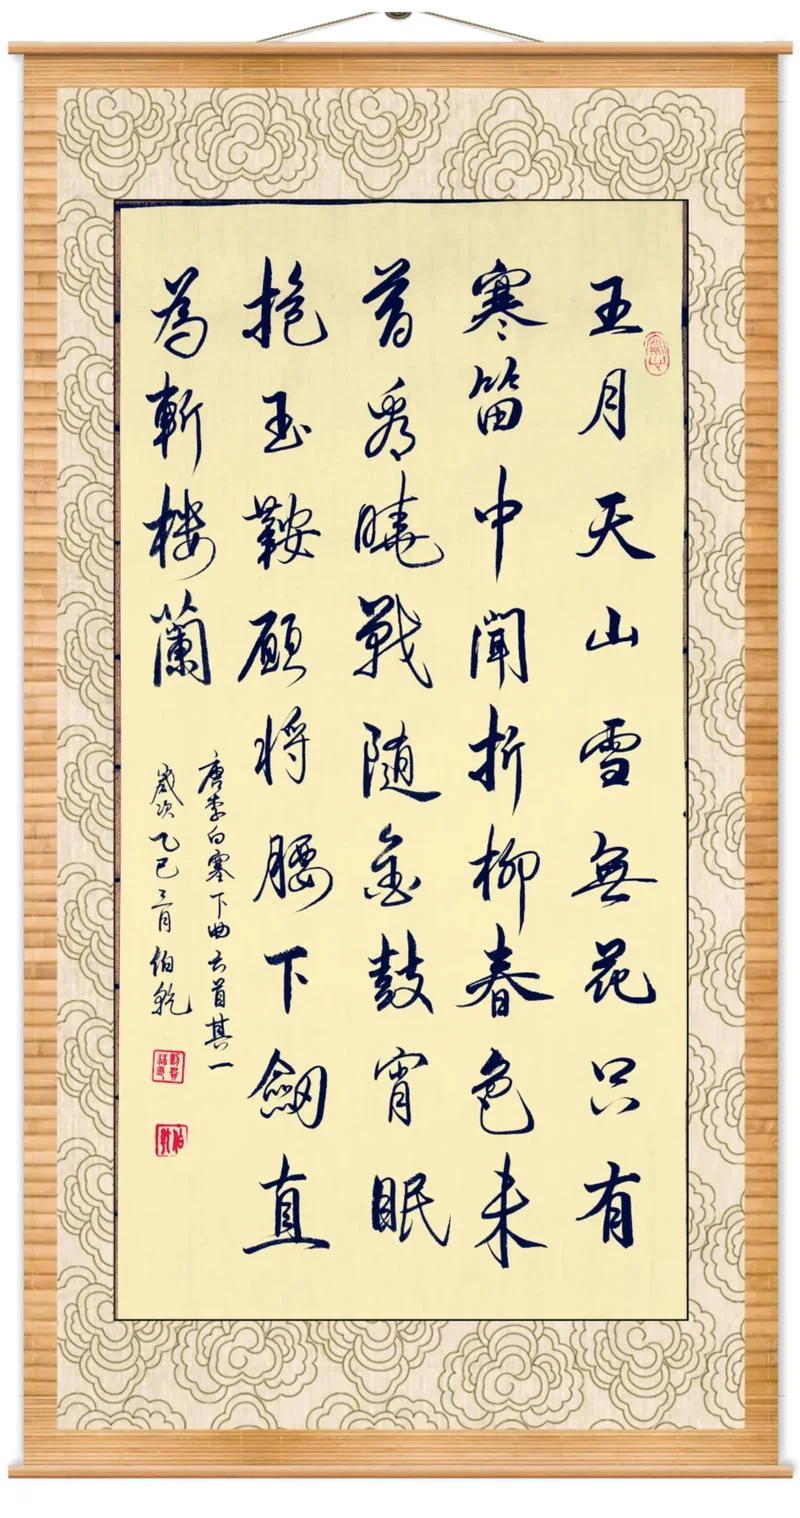 五月天山雪無花只有
寒笛中聞折柳春色未
曾看曉戰随金鼓宵眠
抱玉鞍願将腰下劒直
為斬樓蘭
唐李白塞下曲六首其一
歲次乙巳三月伯乾